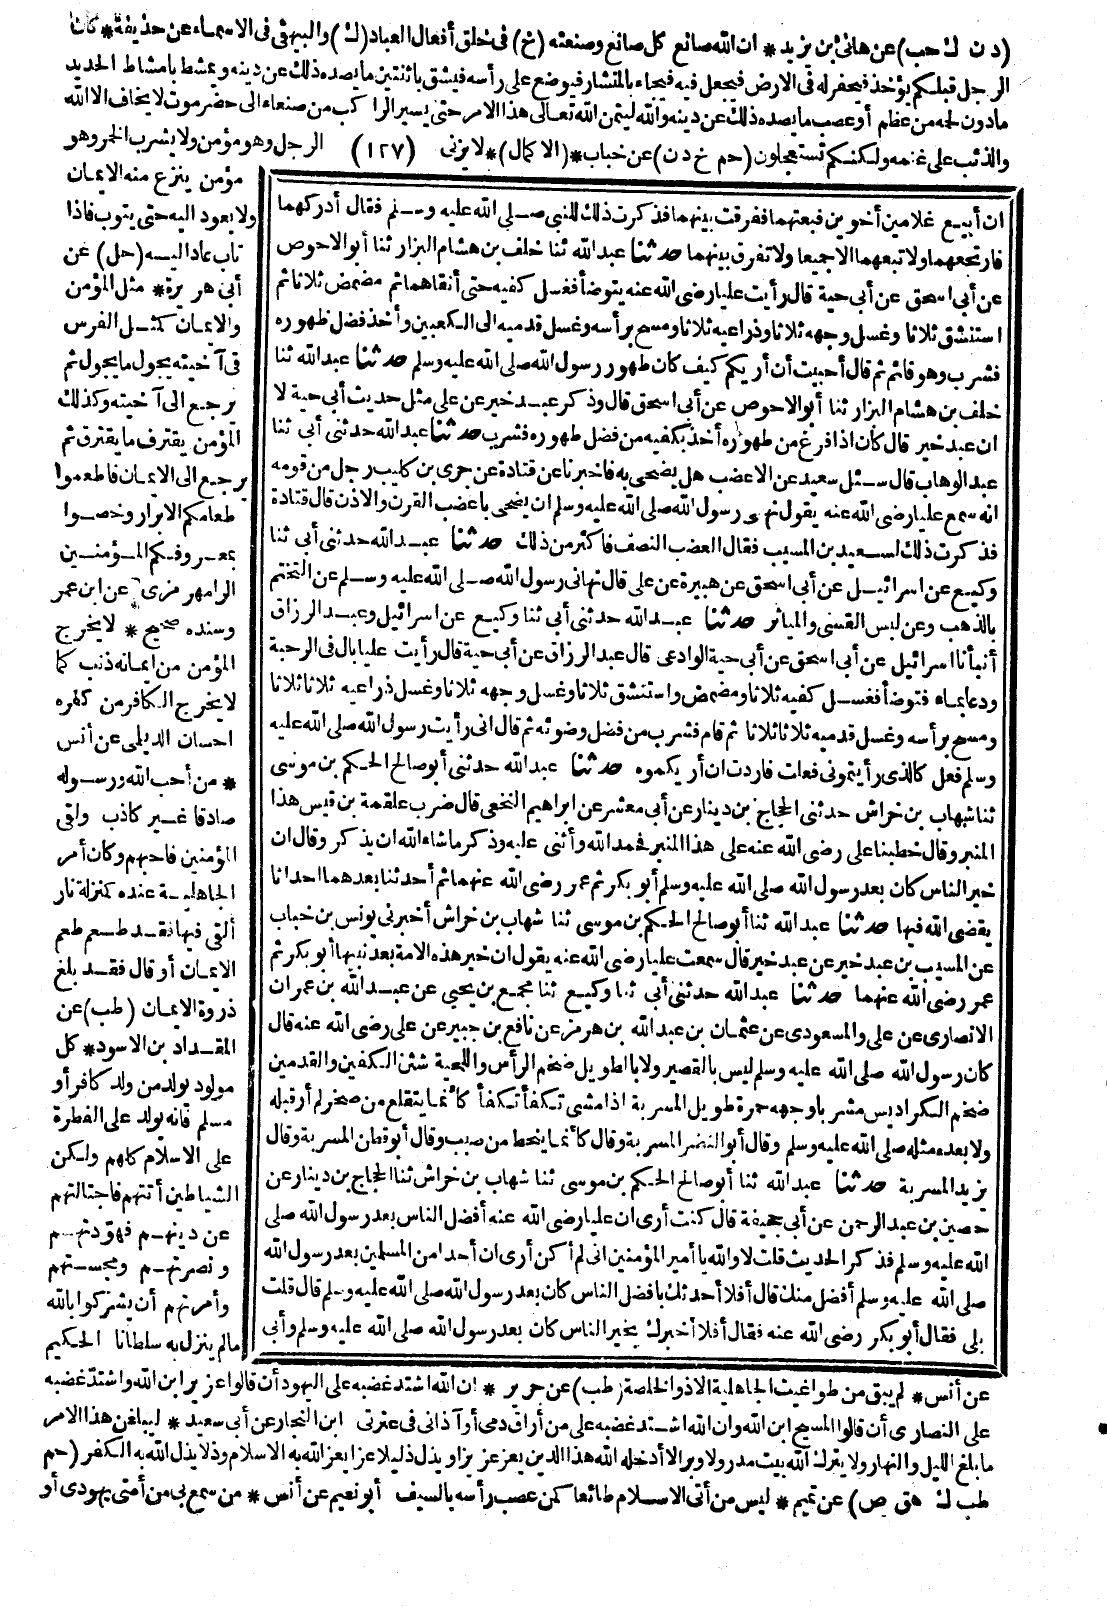 (د ن ك حب) عن هانئ بن يزيد * ان الله صانع كل صانع وصنعته (خ) فى خلق أفعال العباد (ك) والبيهقى فى الاسماء عن حذيفة * كان
الرجل قبلكم يؤخذ فيحفر له فى الارض فيجعل فيه فيجاء بالمنشار فيوضع على رأسه فيشق باثنتين ما يصده ذلك عن دينه ويمشط بامشاط الحديد
مادون لحمه من عظم أو عصب ما يصده ذلك عن دينه والله ليتمن الله تعالى هذا الامر حتى يسير الراكب من صنعاء الى حضرموت لا يخاف الا الله
والذئب على غنمه ولكنكم تستعجلون (حم خ د ن) عن خباب * (الاكمال) * لا يزنى (١٢٧) الرجل وهو مؤمن ولا يشرب الخمر وهو
مؤمن ينزع منه الايمان
ولا يعود اليه حتى يتوب فاذا
تاب عاد اليه (حل) عن
أبى هريرة * مثل المؤمن
والايمان كمثل الفرس
فى آخيته يجول ما يجول ثم
يرجع الى آخيته وكذلك
المؤمن يقترف ما يقترف ثم
يرجع الى الايمان فاطعموا
طعامكم الابرار وخصوا
بمعروفكم المؤمنين
الرامهرمزى عن ابن عمر
وسنده صحيح * لا يخرج
المؤمن من ايمانه ذنب كما
لا يخرج الكافر من كفره
احسان الديلمى عن أنس
* من أحب الله ورسوله
صادقا غير كاذب ولقى
المؤمنين فاحبهم وكان أمر
الجاهلية عنده كمنزلة نار
ألقى فيها فقد طعم طعم
الايمان أو قال فقد بلغ
ذروة الايمان (طب) عن
المقداد بن الاسود * كل
مولود يولد من ولد كافر أو
مسلم فانه يولد على الفطرة
على الاسلام كلهم ولكن
الشياطين أتتهم فاجتالتهم
عن دينهم فهودتهم
ونصرتهم ومجستهم
وأمرتهم أن يشركوا بالله
مالم ينزل به سلطانا الحكيم
ان أبيع غلامين أخوين فبعتهما ففرقت بينهما فذكرت ذلك للنبى صلى الله عليه وسلم فقال أدركهما
فارتجعهما ولا تبعهما الا جميعا ولا تفرق بينهما حدثنا عبد الله ثنا خلف بن هشام البزار ثنا أبو الاحوص
عن أبى اسحق عن أبى حية قال رأيت عليا رضى الله عنه يتوضأ فغسل كفيه حتى أنقاهما ثم مضمض ثلاثا ثم
استنشق ثلاثا وغسل وجهه ثلاثا وذراعيه ثلاثا ومسح برأسه وغسل قدميه الى الكعبين وأخذ فضل طهوره
فشرب وهو قائم ثم قال أحببت أن أريكم كيف كان طهور رسول الله صلى الله عليه وسلم حدثنا عبد الله ثنا
خلف بن هشام البزار ثنا أبو الاحوص عن أبى اسحق قال وذكر عبد خير عن على مثل حديث أبى حية لا
ان عبد خير قال كان اذا فرغ من طهوره أخذ بكفيه من فضل طهوره فشرب حدثنا عبد الله حدثنى أبى ثنا
عبد الوهاب قال سئل سعيد عن الاعضب هل يضحى به فاخبرنا عن قتادة عن جرى بن كليب رجل من قومه
انه سمع عليا رضى الله عنه يقول نهى رسول الله صلى الله عليه وسلم ان يضحى باعضب القرن والاذن قال قتادة
فذكرت ذلك لسعيد بن المسيب فقال العضب النصف فاكثر من ذلك حدثنا عبد الله حدثنى أبى ثنا
وكيع عن اسرائيل عن أبى اسحق عن هبيرة عن على قال نهانى رسول الله صلى الله عليه وسلم عن التختم
بالذهب وعن لبس القسى والمياثر حدثنا عبد الله حدثنى أبى ثنا وكيع عن اسرائيل وعبد الرزاق
أنبأنا اسرائيل عن أبى اسحق عن أبى حية الوادعى قال عبد الرزاق عن أبى حية قال رأيت عليا بال فى الرحبة
ودعا بماء فتوضأ فغسل كفيه ثلاثا ومضمض واستنشق ثلاثا وغسل وجهه ثلاثا وغسل ذراعيه ثلاثا ثلاثا
ومسح برأسه وغسل قدميه ثلاثا ثلاثا ثم قام فشرب من فضل وضوئه ثم قال انى رأيت رسول الله صلى الله عليه
وسلم فعل كالذى رأيتمونى فعلت فاردت ان أريكموه حدثنا عبد الله حدثنى أبو صالح الحكم بن موسى
ثنا شهاب بن خراش حدثنى الحجاج بن دينار عن أبى معشر عن ابراهيم النخعى قال ضرب علقمة بن قيس هذا
المنبر وقال خطبنا على رضى الله عنه على هذا المنبر فحمد الله وأثنى عليه وذكر ما شاء الله ان يذكر وقال ان
خير الناس كان بعد رسول الله صلى الله عليه وسلم أبو بكر ثم عمر رضى الله عنهما ثم أحدثنا بعدهما احداثا
يقضى الله فيها حدثنا عبد الله ثنا أبو صالح الحكم بن موسى ثنا شهاب بن خراش أخبرنى يونس بن خباب
عن المسيب بن عبد خير عن عبد خير قال سمعت عليا رضى الله عنه يقول ان خير هذه الامة بعد نبيها أبو بكر ثم
عمر رضى الله عنهما حدثنا عبد الله حدثنى أبى ثنا وكيع ثنا مجمع بن يحيى عن عبد الله بن عمران
الانصارى عن على والمسعودى عن عثمان بن عبد الله بن هرمز عن نافع بن جبير عن على رضى الله عنه قال
كان رسول الله صلى الله عليه وسلم ليس بالقصير ولا بالطويل ضخم الرأس واللحية شثن الكفين والقدمين
ضخم الكراديس مشربا وجهه حمرة طويل المسربة اذا مشى تكفأ تكفأ كأنما يتقلع من صخر لم أر قبله
ولا بعده مثله صلى الله عليه وسلم وقال أبو النضر المسربة وقال كأنما ينحط من صبب وقال أبو قطن المسربة وقال
يزيد المسربة حدثنا عبد الله ثنا أبو صالح الحكم بن موسى ثنا شهاب بن خراش ثنا الحجاج بن دينار عن
حصين بن عبد الرحمن عن أبى جحيفة قال كنت أرى ان عليا رضى الله عنه أفضل الناس بعد رسول الله صلى
الله عليه وسلم فذكر الحديث قلت لا والله يا أمير المؤمنين انى لم أكن أرى ان أحدا من المسلمين بعد رسول الله
صلى الله عليه وسلم أفضل منك قال أفلا أحدثك بافضل الناس كان بعد رسول الله صلى الله عليه وسلم قال قلت
بلى فقال أبو بكر رضى الله عنه فقال أفلا أخبرك بخير الناس كان بعد رسول الله صلى الله عليه وسلم وأبى
عن أنس * لم يبق من طواغيت الجاهلية الا ذو الخلصة (طب) عن جرير * ان الله اشتد غضبه على اليهود أن قالوا عزير ابن الله واشتد غضبه
على النصارى أن قالوا المسيح ابن الله وان الله اشتد غضبه على من أراق دمى أو آذانى فى عترتى ابن النجار عن أبى سعيد * ليبلغن هذا الامر
ما بلغ الليل والنهار ولا يترك الله بيت مدر ولا وبر الا أدخله الله هذا الدين بعز عزيز أو بذل ذليل عزا يعز الله به الاسلام وذلا يذل الله به الكفر (حم
طب ك هق ص) عن تميم * ليس من أتى الاسلام طائعا كمن عصب رأسه بالسيف أبو نعيم عن أنس * من سمع بى من أمتى يهودى أو